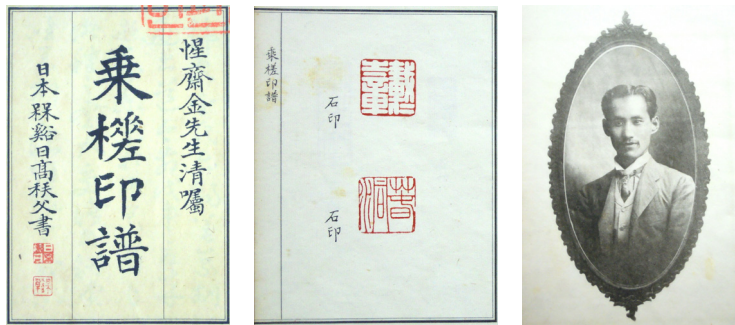 惺齋金先生清囑
乘槎印譜
日本槑谿日高秩父書
乘槎印譜
石印
石印